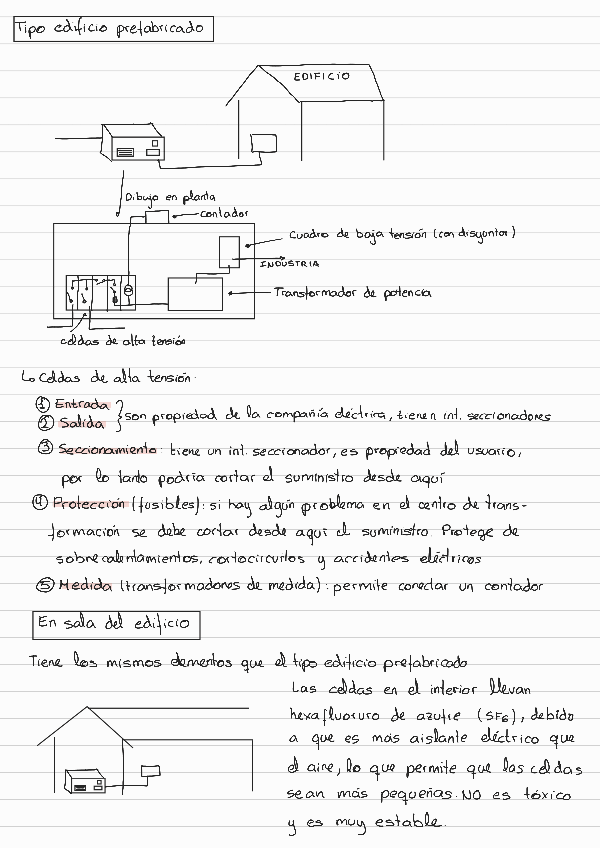 Tipo edificio prefabricado
EDIFICIO
Dibujo en planta
contador
Cuadro de baja tensión (con disyuntor)
INDUSTRIA
Transformador de potencia
celdas de alta tensión
↳ Celdas de alta tensión:
① Entrada
② Salida
} son propiedad de la compañía eléctrica, tienen int. seccionadores
③ Seccionamiento: tiene un int. seccionador, es propiedad del usuario,
por lo tanto podría cortar el suministro desde aquí
④ Protección (fusibles): si hay algún problema en el centro de trans-
formación se debe cortar desde aquí el suministro. Protege de
sobrecalentamientos, cortocircuitos y accidentes eléctricos
⑤ Medida (transformadores de medida): permite conectar un contador
En sala del edificio
Tiene los mismos elementos que el tipo edificio prefabricado
Las celdas en el interior llevan
hexafluoruro de azufre (SF6), debido
a que es más aislante eléctrico que
el aire, lo que permite que las celdas
sean más pequeñas. NO es tóxico
y es muy estable.